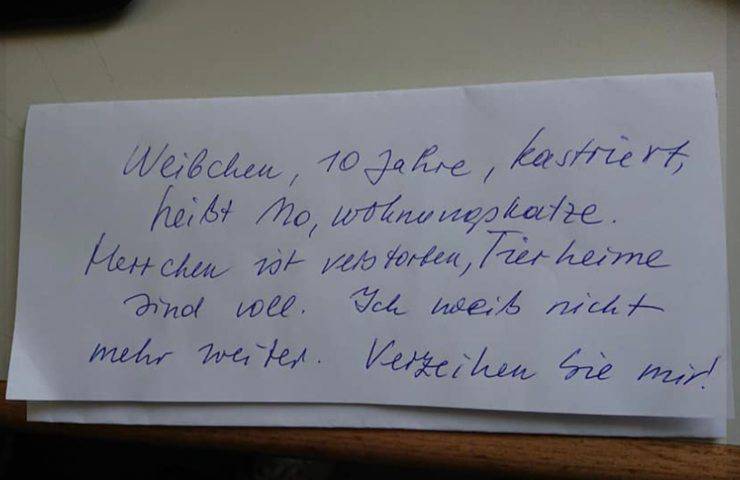 Weibchen, 10 Jahre, kastriert,
heißt Mo, wohnungskatze.
Herrchen ist verstorben, Tierheime
sind voll. Ich weiß nicht
mehr weiter. Verzeihen Sie mir!